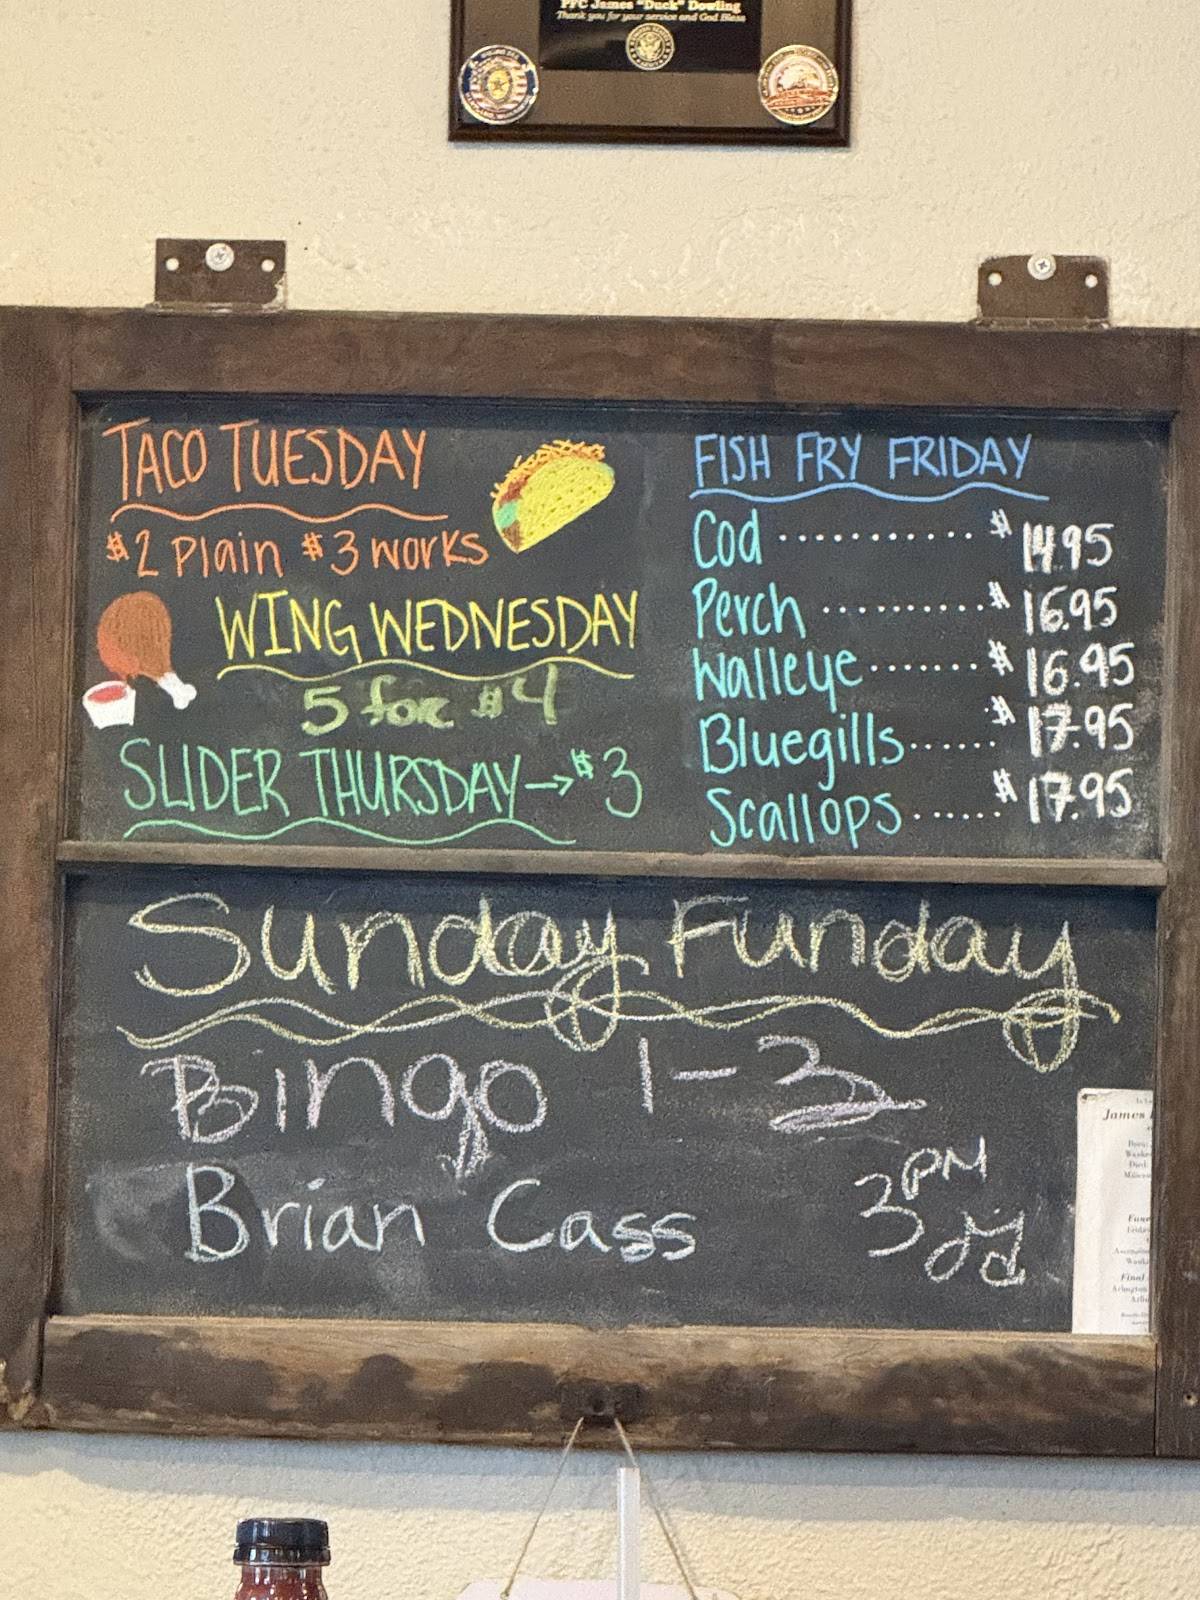 PFC James "Duck" Dowling
Thank you for your service and God Bless
TACO TUESDAY
$2 Plain $3 works
WING WEDNESDAY
5 for $4
SLIDER THURSDAY→$3
FISH FRY FRIDAY
Cod ........... $14.95
Perch .......... $16.95
Walleye ....... $16.95
Bluegills ...... $17.95
Scallops ...... $17.95
Sunday Funday
Bingo 1-3
Brian Cass 3PM
James
Died:
Final
Arlington